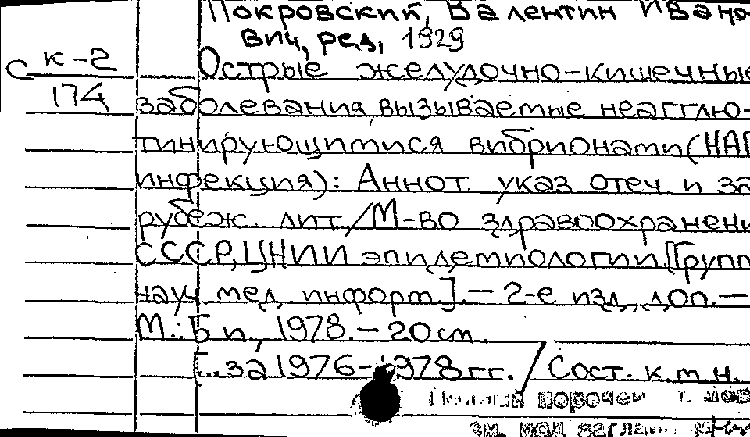 Покровский, Валентин Ивано
вич, ред, 1929
С к-2
174
Острые желудочно-кишечные
заболевания, вызываемые неагглю-
тинирующимися вибрионами (НАГ
инфекция): Аннот. указ отеч и за
рубеж. лит/М-во здравоохранени
СССР, ЦНИИ эпидемиологии [Групп
науч мед, информ].— 2-е изд, доп.—
М.: Б и, 1978.— 20 см.
[..за 1976-1978 гг. / Сост. к.м.н.
порочен